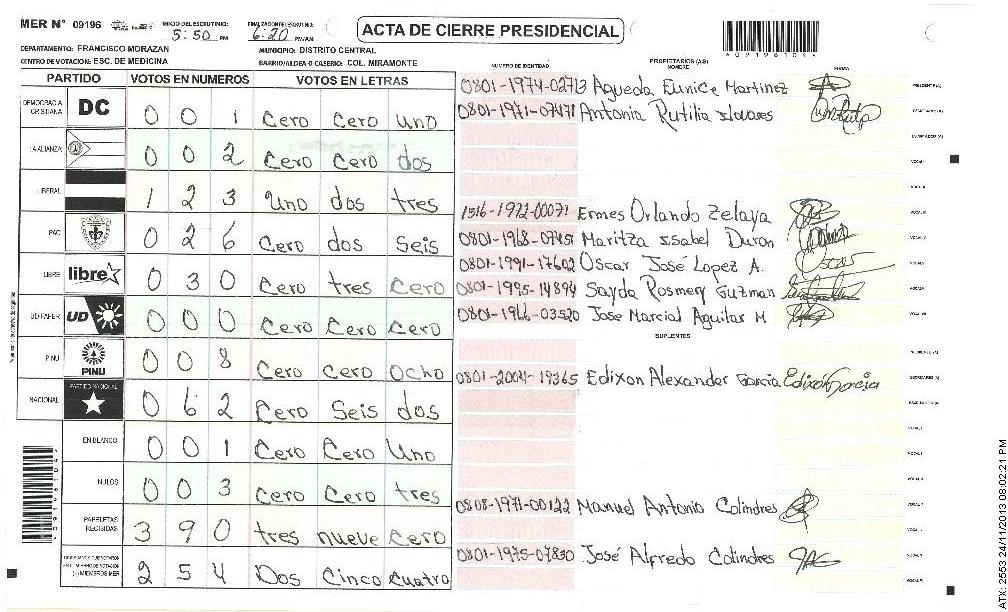 MER N° 09196 INICIO DEL ESCRUTINIO: 5:50 PM FINALIZACION DEL ESCRUTINIO: 6:20 PM/AM ACTA DE CIERRE PRESIDENCIAL
DEPARTAMENTO: FRANCISCO MORAZAN MUNICIPIO: DISTRITO CENTRAL
CENTRO DE VOTACION: ESC. DE MEDICINA BARRIO/ALDEA O CASERIO: COL. MIRAMONTE
PARTIDO VOTOS EN NUMEROS VOTOS EN LETRAS
DEMOCRACIA CRISTIANA DC 0 0 1 Cero Cero Uno
LA ALIANZA 0 0 2 Cero Cero dos
LIBERAL 1 2 3 Uno dos tres
PAC 0 2 6 Cero dos Seis
LIBRE libre 0 3 0 Cero tres Cero
UD-FAPER UD 0 0 0 Cero Cero Cero
PINU PINU 0 0 8 Cero Cero Ocho
NACIONAL PARTIDO NACIONAL 0 6 2 Cero Seis dos
EN BLANCO 0 0 1 Cero Cero Uno
NULOS 0 0 3 Cero Cero tres
PAPELETAS RECIBIDAS 3 9 0 tres nueve Cero
2 5 4 Dos Cinco Cuatro
NUMERO DE IDENTIDAD PROPIETARIOS (AS) NOMBRE FIRMA
0801-1974-02713 Agueda Eunice Martinez PRESIDENTE (A)
0801-1971-07471 Antonia Rutilia
1516-1972-00071 Ermes Orlando Zelaya
0801-1968-07451 Maritza Isabel Duron
0801-1991-17602 Oscar José Lopez A. Oscar
0801-1995-14894 Sayda Rosmery Guzman
0801-1966-03520 Jose Marcial Aguilar M
SUPLENTES
0801-2004-19365 Edixon Alexander Garcia Edixon Garcia
0808-1971-00122 Manuel Antonio Colindres
0801-1975-07830 José Alfredo Colindres
ATX: 2553 24/11/2013 08:02:21 PM